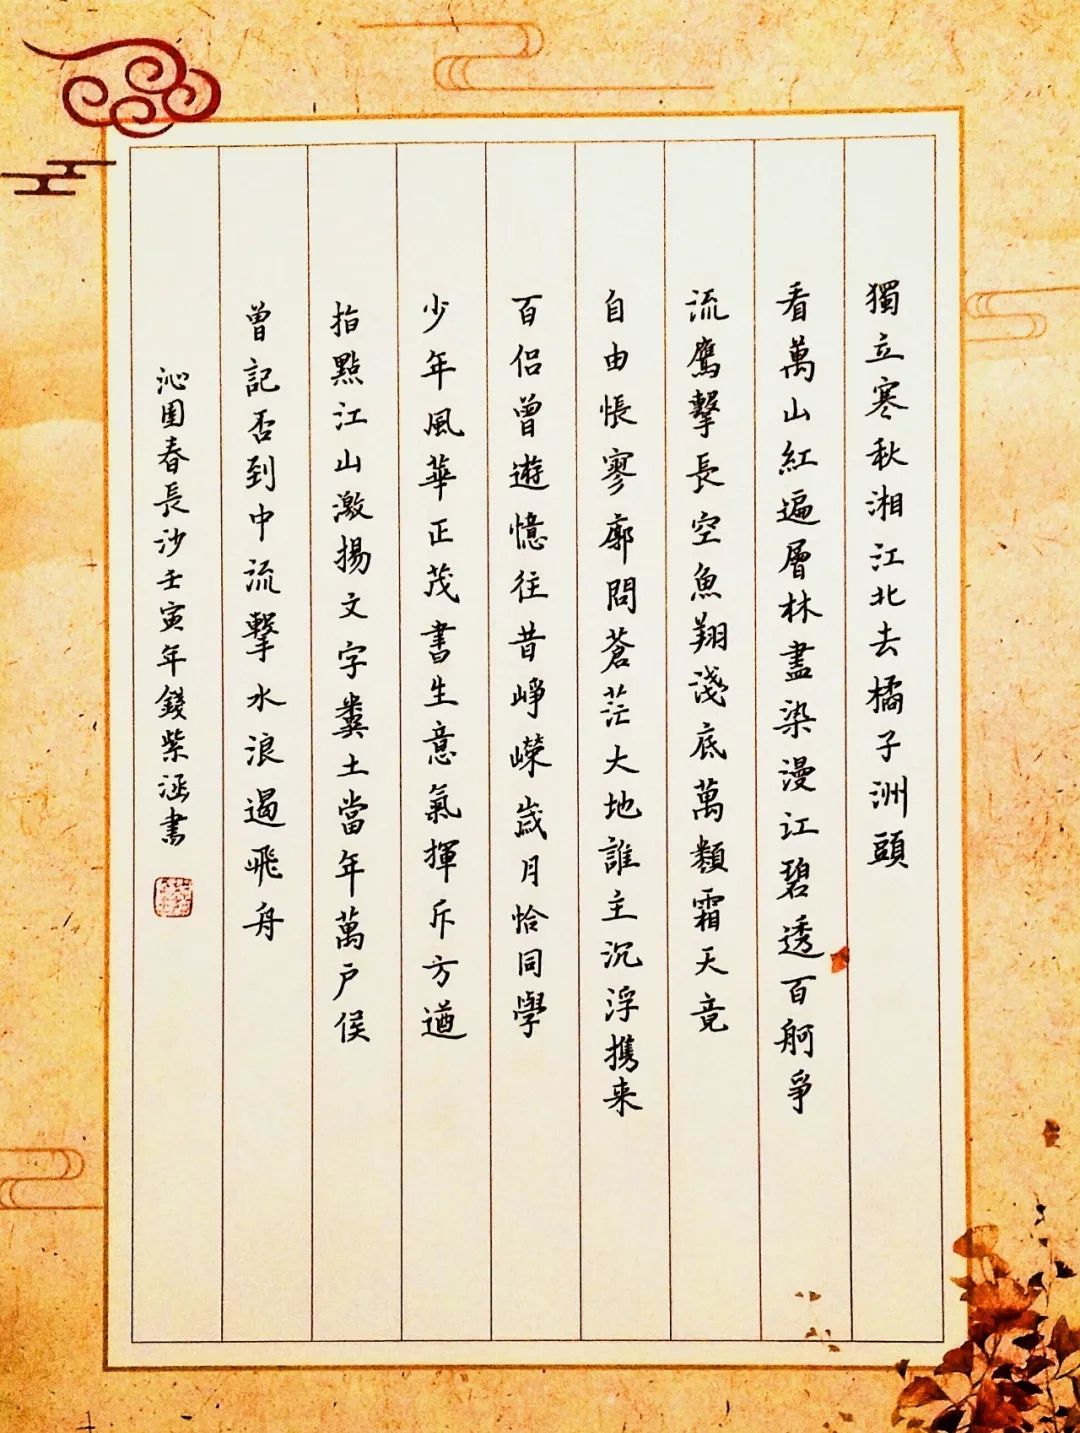 獨立寒秋湘江北去橘子洲頭
看萬山紅遍層林盡染漫江碧透百舸爭
流鷹擊長空魚翔淺底萬類霜天竟
自由悵寥廓問蒼茫大地誰主沉浮携来
百侣曾遊憶往昔崢嶸歲月恰同學
少年風華正茂書生意氣揮斥方遒
指點江山激揚文字糞土當年萬户侯
曾記否到中流擊水浪遏飛舟
沁園春長沙壬寅年錢紫涵書